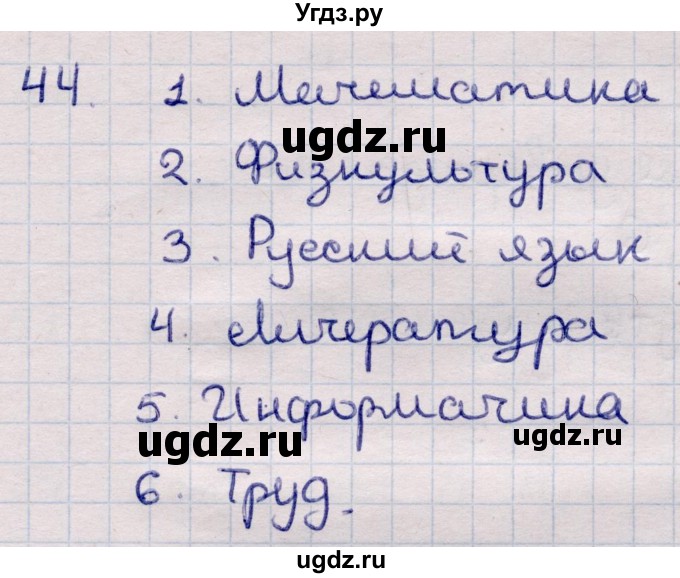 Угдз.ру
44. 1. Математика
ugdz.ru
2. Физкультура
3. Русский язык
4. Литература
5. Информатика
ugdz.ru
ugdz.ru
6. Труд.
ugdz.ru